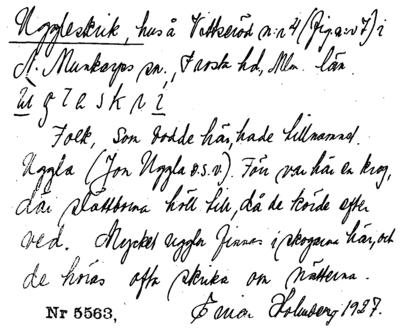 Uggleskrik, hus å Vittseröd n:r 4 (Fig. a:v 7) i
N. Munkarps sn., Frosta hd, Mlm. län.
Folk, som bodde här, hade tillnamnet
Uggla (Jon Uggla o.s.v.). Förr var här en krog,
där slättborna höll till, då de körde efter
ved. Mycket ugglor finnas i skogarna här, och
de höras ofta skrika om nätterna.
Nr 5563, Einar Holmberg 1927.